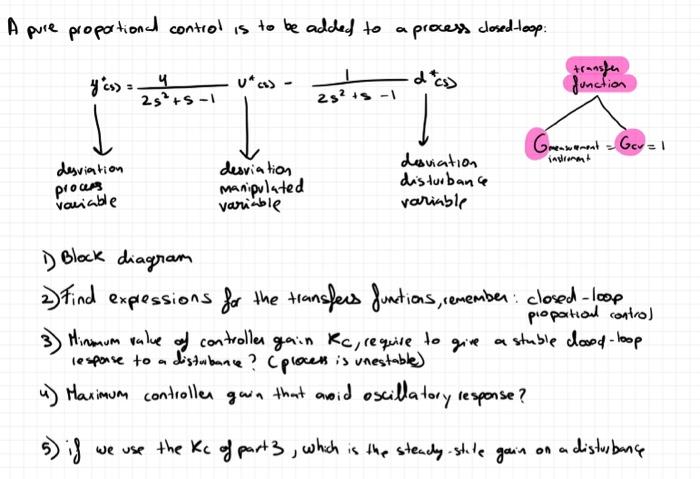 A pure proportional control is to be added to a process closed-loop:
y*(s) = 4 / (2s²+s-1) U*(s) - 1 / (2s²+s-1) d*(s)
transfer
function
G measurement instrument = Gcv = 1
desviation
process
variable
desviation
manipulated
variable
desviation
disturbance
variable
1) Block diagram
2) Find expressions for the transfers funtions, remember: closed-loop
propotional control
3) Minimum value of controller gain Kc, require to give a stable closed-loop
response to a disturbance? (process is unestable)
4) Maximum controller gain that avoid oscillatory response?
5) if we use the Kc of part 3, which is the steady-state gain on a disturbance